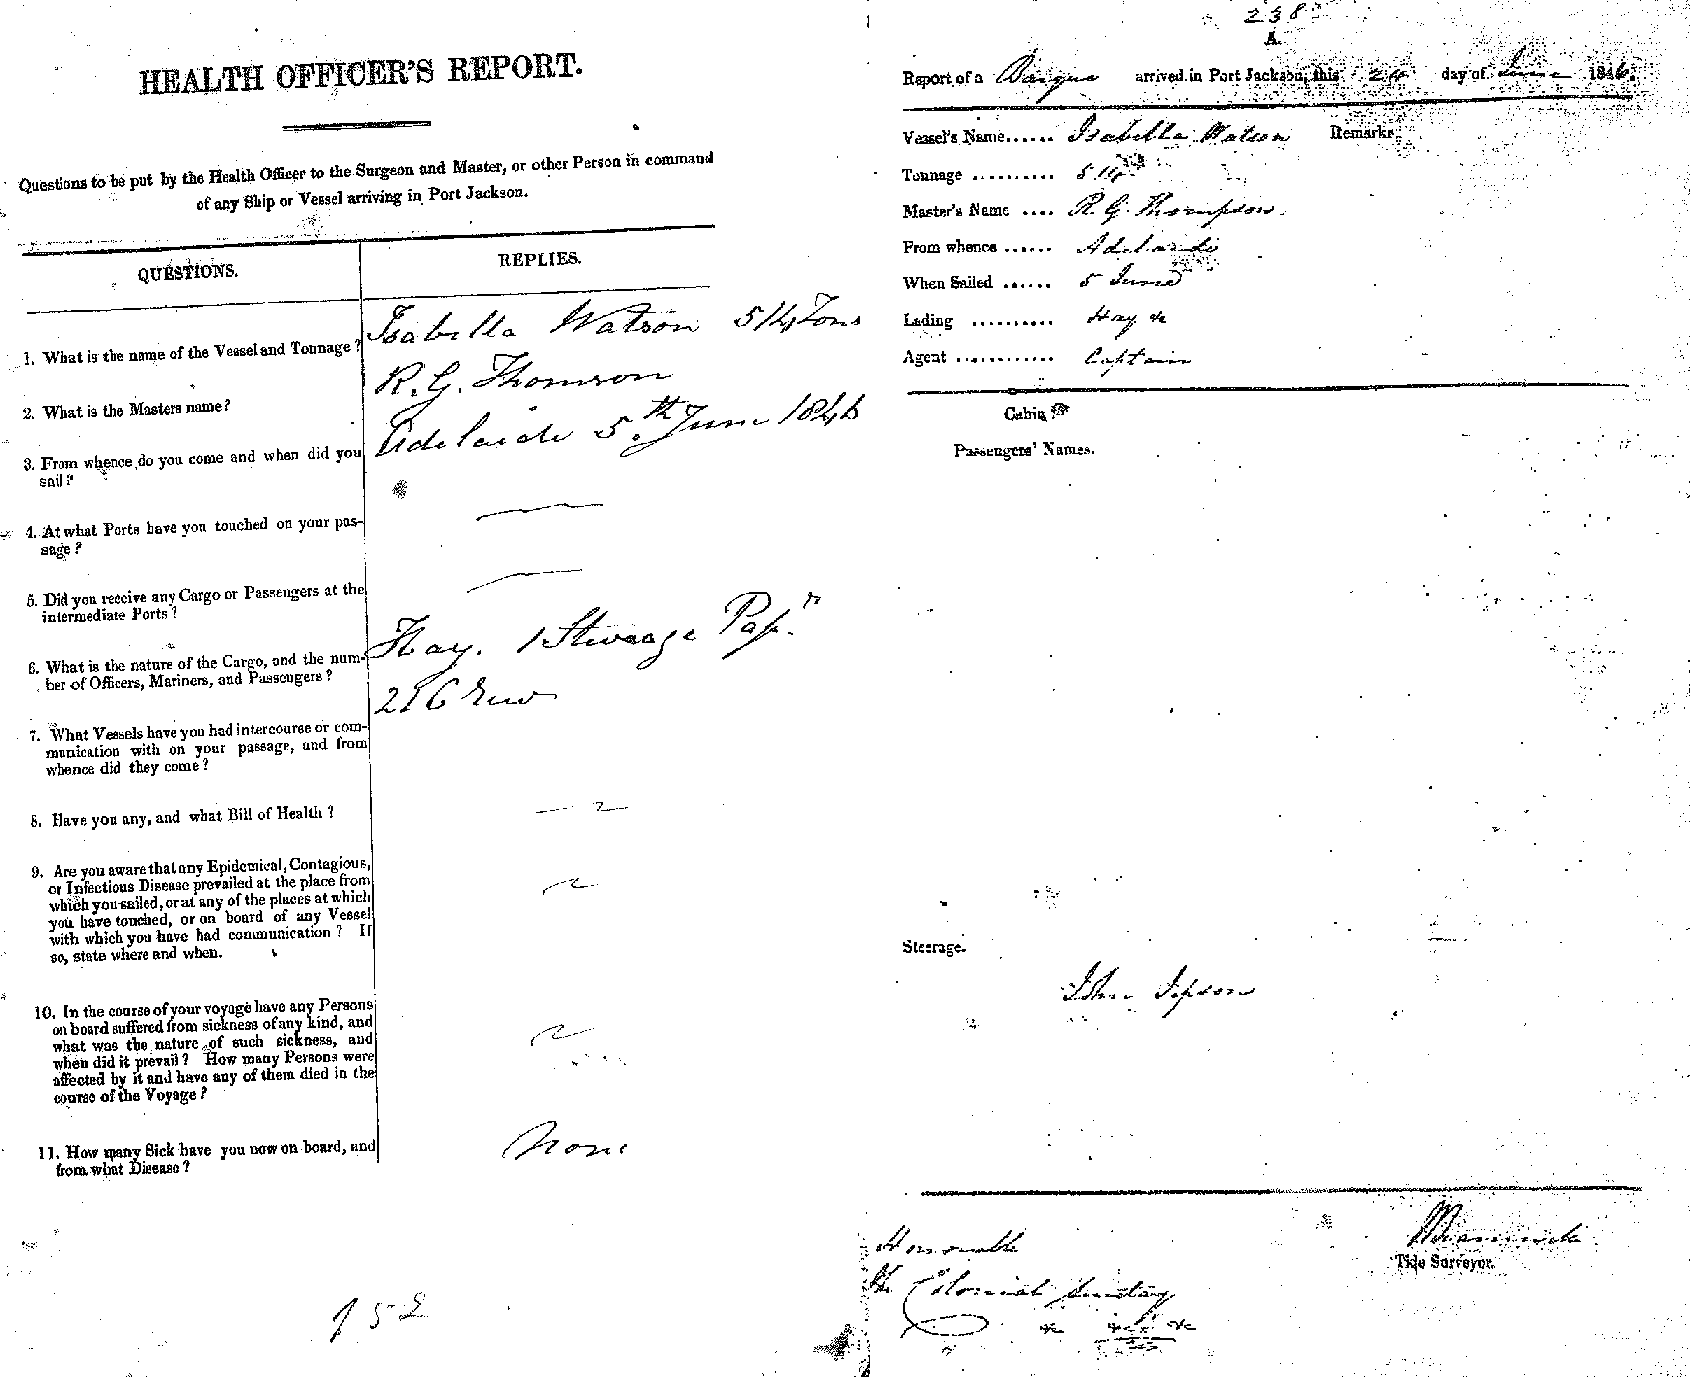 HEALTH OFFICER'S REPORT.
Questions to be put by the Health Officer to the Surgeon and Master, or other Person in command
of any Ship or Vessel arriving in Port Jackson.
QUESTIONS.
REPLIES.
1. What is the name of the Vessel and Tonnage?
Isabella Watson 514 Tons
2. What is the Masters name?
R. G. Thomson
3. From whence do you come and when did you
sail?
Adelaide 5th June 1846
4. At what Ports have you touched on your pas-
sage?
5. Did you receive any Cargo or Passengers at the
intermediate Ports?
6. What is the nature of the Cargo, and the num-
ber of Officers, Mariners, and Passengers?
Hay. 1 Steerage Pasr
Crew
7. What Vessels have you had intercourse or com-
munication with on your passage, and from
whence did they come?
8. Have you any, and what Bill of Health?
9. Are you aware that any Epidemical, Contagious,
or Infectious Disease prevailed at the place from
which you sailed, or at any of the places at which
you have touched, or on board of any Vessel
with which you have had communication? If
so, state where and when.
10. In the course of your voyage have any Persons
on board suffered from sickness of any kind, and
what was the nature of such sickness, and
when did it prevail? How many Persons were
affected by it and have any of them died in the
course of the Voyage?
11. How many Sick have you now on board, and
from what Disease?
None
152
238
A
Report of a Barque arrived in Port Jackson, this 24 day of June 1846.
Vessel's Name...... Isabella Watson Remarks.
Tonnage .......... 514
Master's Name .... R G. Thompson
From whence ...... Adelaide
When Sailed ...... 5 June
Lading .......... Hay &c
Agent ........... Captain
Cabin
Passengers' Names.
Steerage.
John Jepson
Tide Surveyor.
Honorable
The Colonial Secretary
&c &c &c